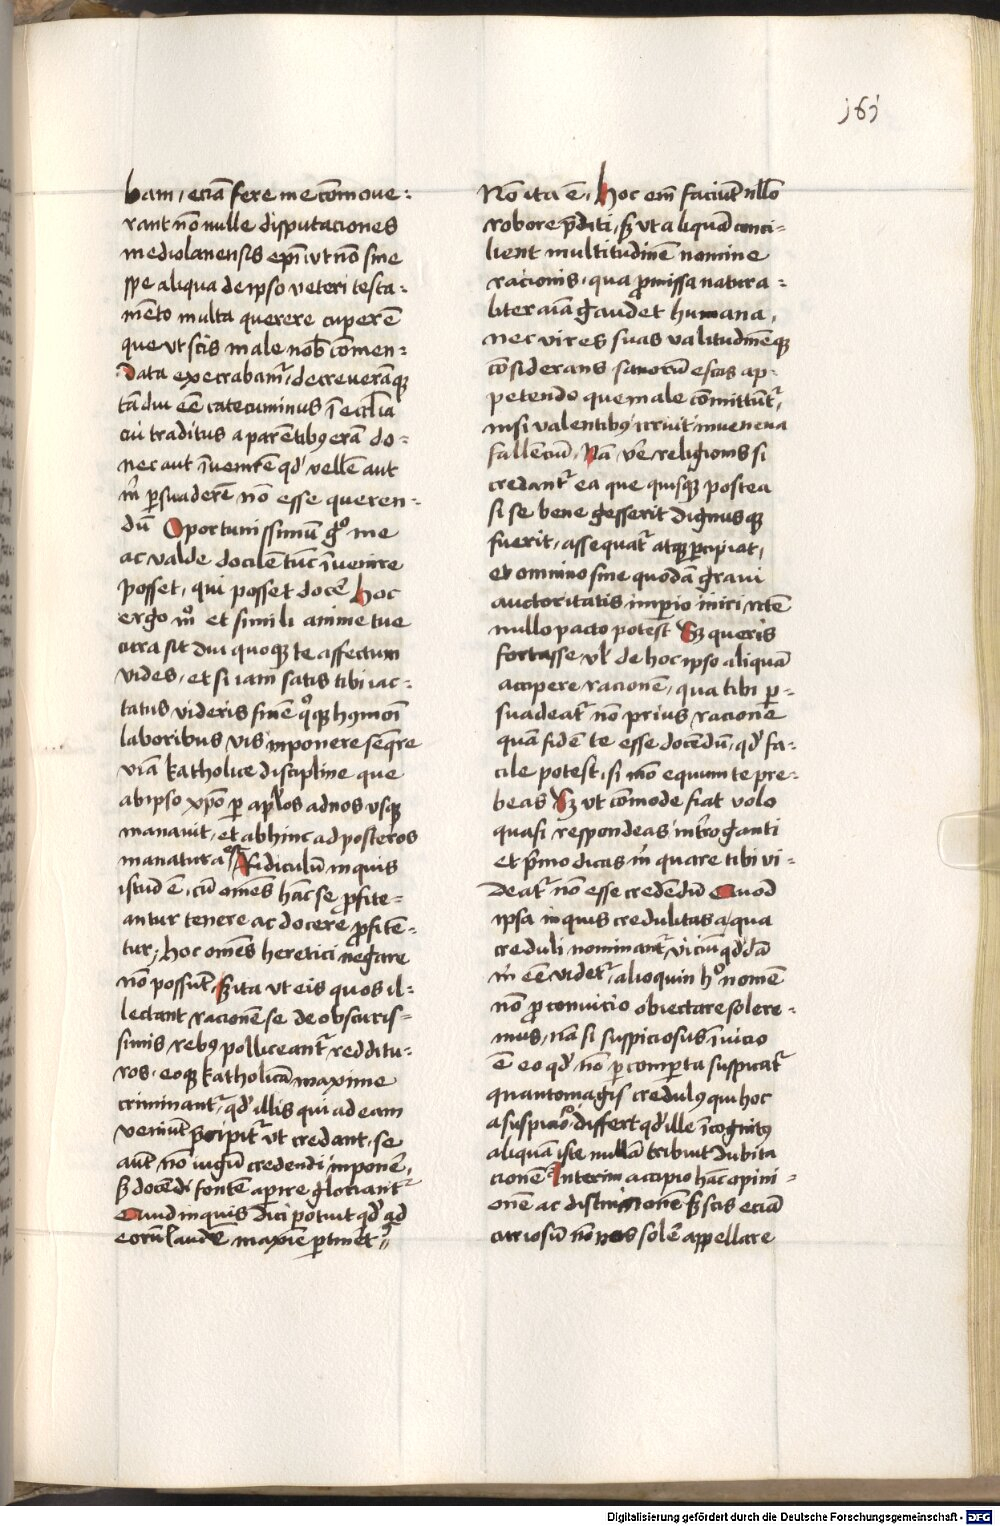 161
bam, eciā fere me cōmoue-
rant nō nulle disputaciones
mediolanensis ep̄i, vt nō sine
spe aliqua de ipso veteri testa-
mēto multa querere cuperē
que vt scis male nob̄ cōmen-
data execrabamr̄, decreuerāq̄
tā diu eē catecuminus ī eccl̄ia
cui traditus a parētibꝰ erā do-
nec aut īuenirē qd̓ vellē aut
m̄ ꝑsuaderē nō esse queren-
dū Oportunissimū gͦ me
ac valde docilē tūc īuenire
posset, qui posset docē̓ hoc
ergo mͦ et simili anime tue
cura sit diu quoqꝫ te affectum
vides, et si iam satis tibi iac-
tatus videris finē qͦqꝫ hꝰmōi
laboribus vis inponere seq̄re
viā katholice discipline que
ab ipso xp̄o ꝑ aplōs ad nos vsqꝫ
manauit, et ab hinc ad posteros
manatura est Ridiculū inquis
istud ē, cū om̄es hāc se ꝓfite-
antur tenere ac docere ꝓfitē-
tur, hoc om̄es heretici negare
nō possūt, sꝫ ita vt eis quos il-
lectant racionē se de obscuris-
simis rebꝰ polliceantr̄ redditu-
ros, eoqꝫ katholicā maxime
criminantr̄, qd̓ illis qui ad eam
veniūt p̄cipitr̄ vt credant, se
aūt nō iugū credendi inponē̓,
sꝫ docēdi fontē aperire gloriantr̄
Quid inquis dici potuit qd̓ ad
eorū laudē maxīe ꝑtinet̓
Nō ita ē, hoc em̄ faciūt nll̄o
robore p̄diti, sꝫ vt aliquā conci-
lient multitudinē nomine
racionis, qua ꝓmissa natura-
liter aīa gaudet humana,
nec vires suas valitudinēqꝫ
cōsiderans sanorū escas ap-
petendo que male cōmittūtr̄,
nisi valentibꝰ irruit in venena
fallenciū, Nā v̓e religionis si
credantr̄ ea que quisqꝫ postea
si se bene gesserit dignusqꝫ
fuerit, assequatr̄ atqꝫ ꝑcipiat,
et omnino sine quodā graui
auctoritatis imperio iniri rc̄te
nullo pacto potest Sꝫ queris
fortasse vl̓ de hoc ipso aliquā
accipere racionē, qua tibi ꝑ-
suadeatr̄ nō prius racione
quā fide te esse docendū, qd̓ fa-
cile potest, si mō equum te pre-
beas Sꝫ vt cōmode fiat volo
quasi respondeas int̓roganti
et p̓mo dicas m̄ quare tibi vi-
deatr̄ nō esse credendū Quod
ipsa inquis credulitas a qua
creduli nominantr̄, viciū qd̓dā
m̄ eē videtr̄, alioquin hͦ nomē
nō ꝓ conuicio obiectare solere-
mus, nā si suspiciosus ī vicio
ē eo qd̓ nō ꝑ comperta suspicatr̄
quantomagis credulꝰ qui hoc
a suspicioͦ differt qd̓ ille īcognitꝰ
aliquā iste nullā tribuit dubita
cionē Interim accipio hāc opini-
onē ac distinctionē sꝫ scis eciā
curiosū nō nos solē̓ appellare
Digitalisierung gefördert durch die Deutsche Forschungsgemeinschaft - DFG